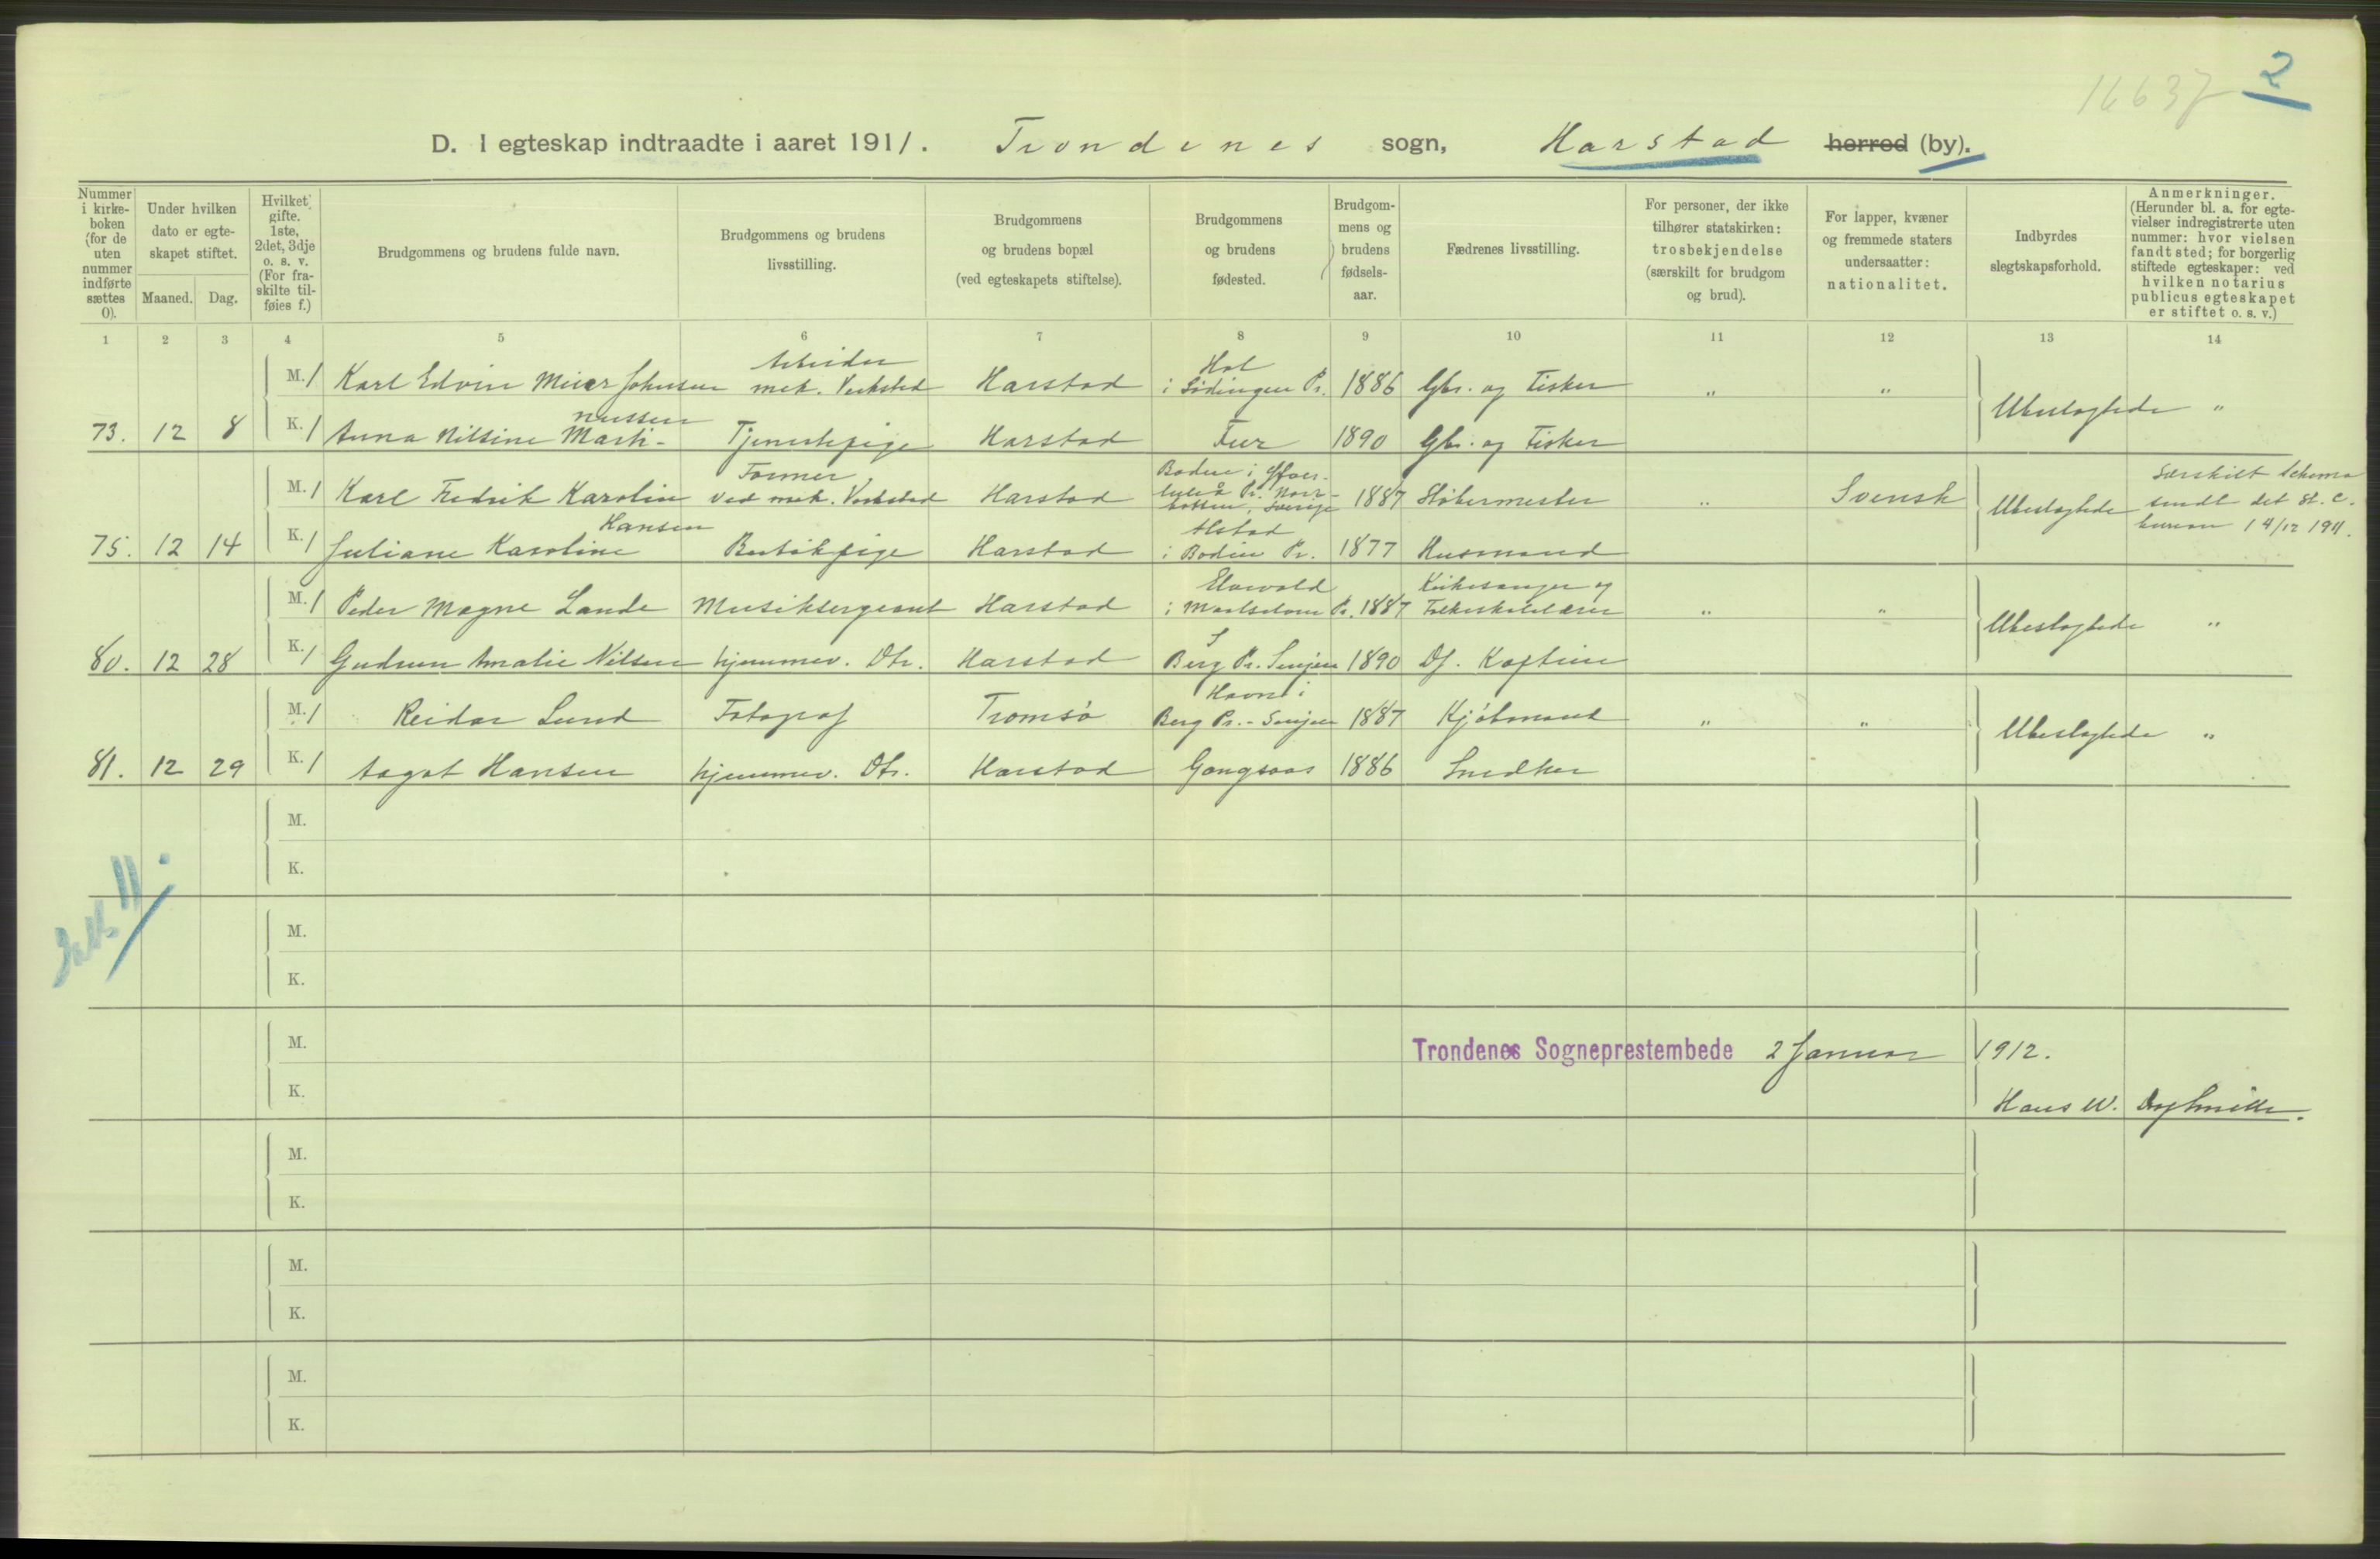 16637 2
D. I egteskap indtraadte i aaret 1911. Trondenes sogn, Harstad herred (by).
Nummer i kirkeboken (for de uten nummer indførte sættes 0).
Under hvilken dato er egteskapet stiftet.
Maaned. Dag.
Hvilket gifte. 1ste, 2det, 3dje o. s. v. (For fraskilte tilføies f.)
Brudgommens og brudens fulde navn.
Brudgommens og brudens livsstilling.
Brudgommens og brudens bopæl (ved egteskapets stiftelse).
Brudgommens og brudens fødested.
Brudgommens og brudens fødselsaar.
Fædrenes livsstilling.
For personer, der ikke tilhører statskirken: trosbekjendelse (særskilt for brudgom og brud).
For lapper, kvæner og fremmede staters undersaatter: nationalitet.
Indbyrdes slegtskapsforhold.
Anmerkninger. (Herunder bl. a. for egtevielser indregistrerte uten nummer: hvor vielsen fandt sted; for borgerlig stiftede egteskaper: ved hvilken notarius publicus egteskapet er stiftet o. s. v.)
1 2 3 4 5 6 7 8 9 10 11 12 13 14
M. 1 Karl Edvin Meier Johnsen Arbeider mek. Verksted Harstad Hol i Lødingen Pr. 1886 Gbr. og Fisker " "
73. 12 8 K. 1 Anna Nilsine Martinussen Tjenestepige Harstad 1890 Gbr. og Fisker Ubeslegtede "
M. 1 Karl Fredrik Karolin Former ved mek. Verksted Harstad Boden i Över-luleå Pr. Norr-botten, Sverige 1887 Støbermester " Svensk Særskilt Schema sendt det st. c. 14/12 1911.
75. 12 14 K. 1 Juliane Karoline Hansen Harstad Alstad i Bodin Pr. 1877 Husmand Ubeslegtede
M. 1 Peder Magne Lande Musiksergeant Harstad i Maalselven Pr. 1887 Kirkesanger og Folkeskolelærer " "
80. 12 28 K. 1 Gudrun Amalie Nilsen hjemmev. Dtr. Harstad I Berg Pr. Senjen 1890 Df. Kaptein Ubeslegtede "
M. 1 Reidar Lund Fotograf Tromsø Havn i Berg Pr. - Senjen 1887 Kjøbmand " "
81. 12 29 K. 1 Aagot Hansen hjemmev. Dtr. Harstad Gangsaas 1886 Snedker Ubeslegtede "
M.
K.
M.
K.
M. Trondenes Sogneprestembede 2 Januar 1912.
K. Hans W.
M.
K.
M.
K.
M.
K.